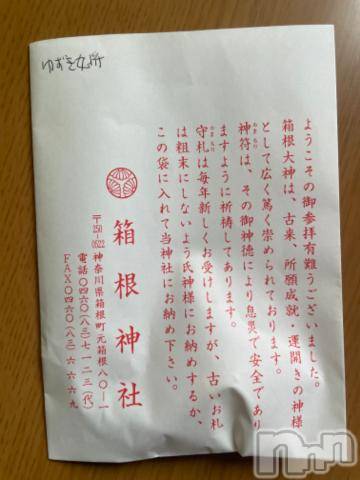 ゆずき
ようこその御参拝有難うございました。
箱根大神は、古来、所願成就・運開きの神様
として広く篤く崇められております。
神符は、その御神徳により息災で安全であり
ますように祈祷してあります。
守札は毎年新しくお受けしますが、古いお札
は粗末にしないよう氏神様にお納めするか、
この袋に入れて当神社にお納め下さい。
箱根神社
〒250-0522 神奈川県箱根町元箱根八〇-一
電話〇四六〇(八三)七一二三(代)
FAX〇四六〇(八三)六六六九